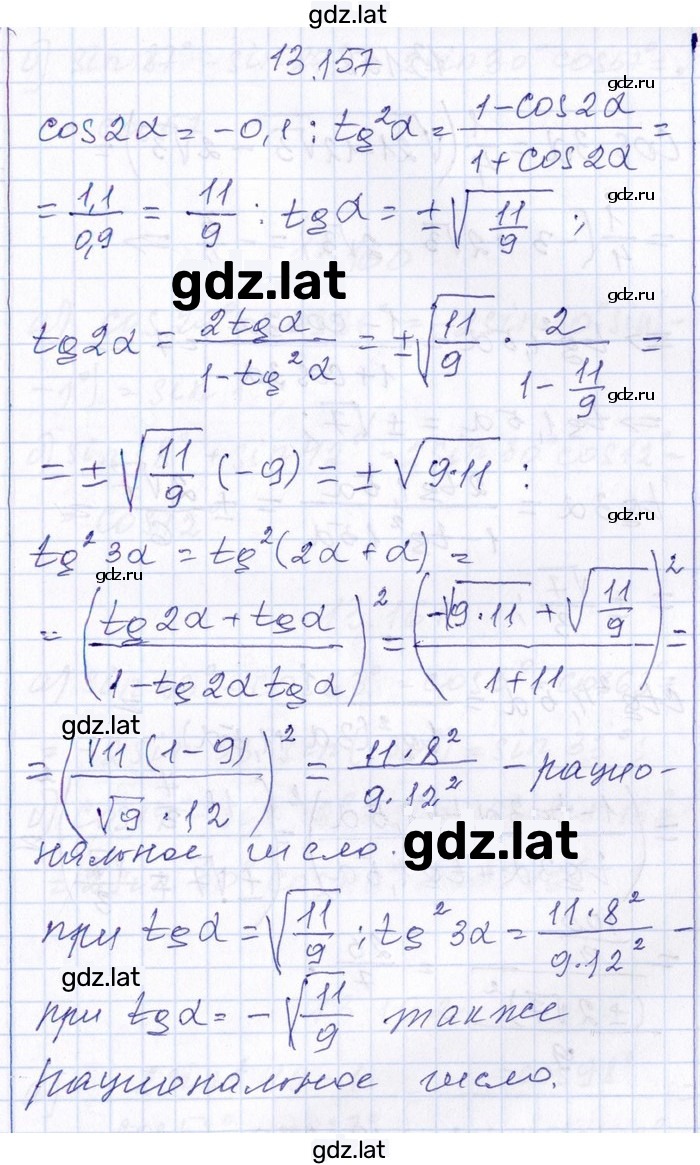 gdz.lat
13.157
gdz.ru
cos2α = -0,1 ; tg²α = (1-cos2α)/(1+cos2α) =
gdz.ru
= 1,1/0,9 = 11/9 ; tgα = ±√(11/9) ;
gdz.ru
gdz.lat
gdz.ru
tg2α = 2tgα/(1-tg²α) = ±√(11/9) · 2/(1-11/9) =
gdz.ru
= ±√(11/9) (-9) = ±√(9·11) ;
gdz.ru
tg²3α = tg²(2α+α) =
gdz.ru
= ((tg2α+tgα)/(1-tg2α tgα))² = ((-√(9·11)+√(11/9))/(1+11))² =
gdz.lat
= (√11 (1-9)/(√9·12))² = 11·8²/(9·12²) - рацио-
нальное число.
gdz.lat
при tgα = √(11/9) ; tg²3α = 11·8²/(9·12²) -
gdz.lat
при tgα = -√(11/9) также
рациональное число.
gdz.lat